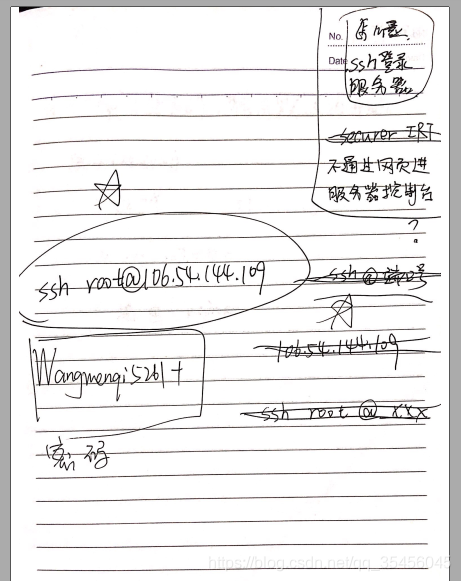 No.
Date
ssh登录
服务器
securer IRT
不通过网页进
服务器控制台
?
ssh root@106.54.144.109
ssh @ 端口号
106.54.144.109
Wangmengi5261+
ssh root @ xxx
密码
https://blog.csdn.net/qq_35456045